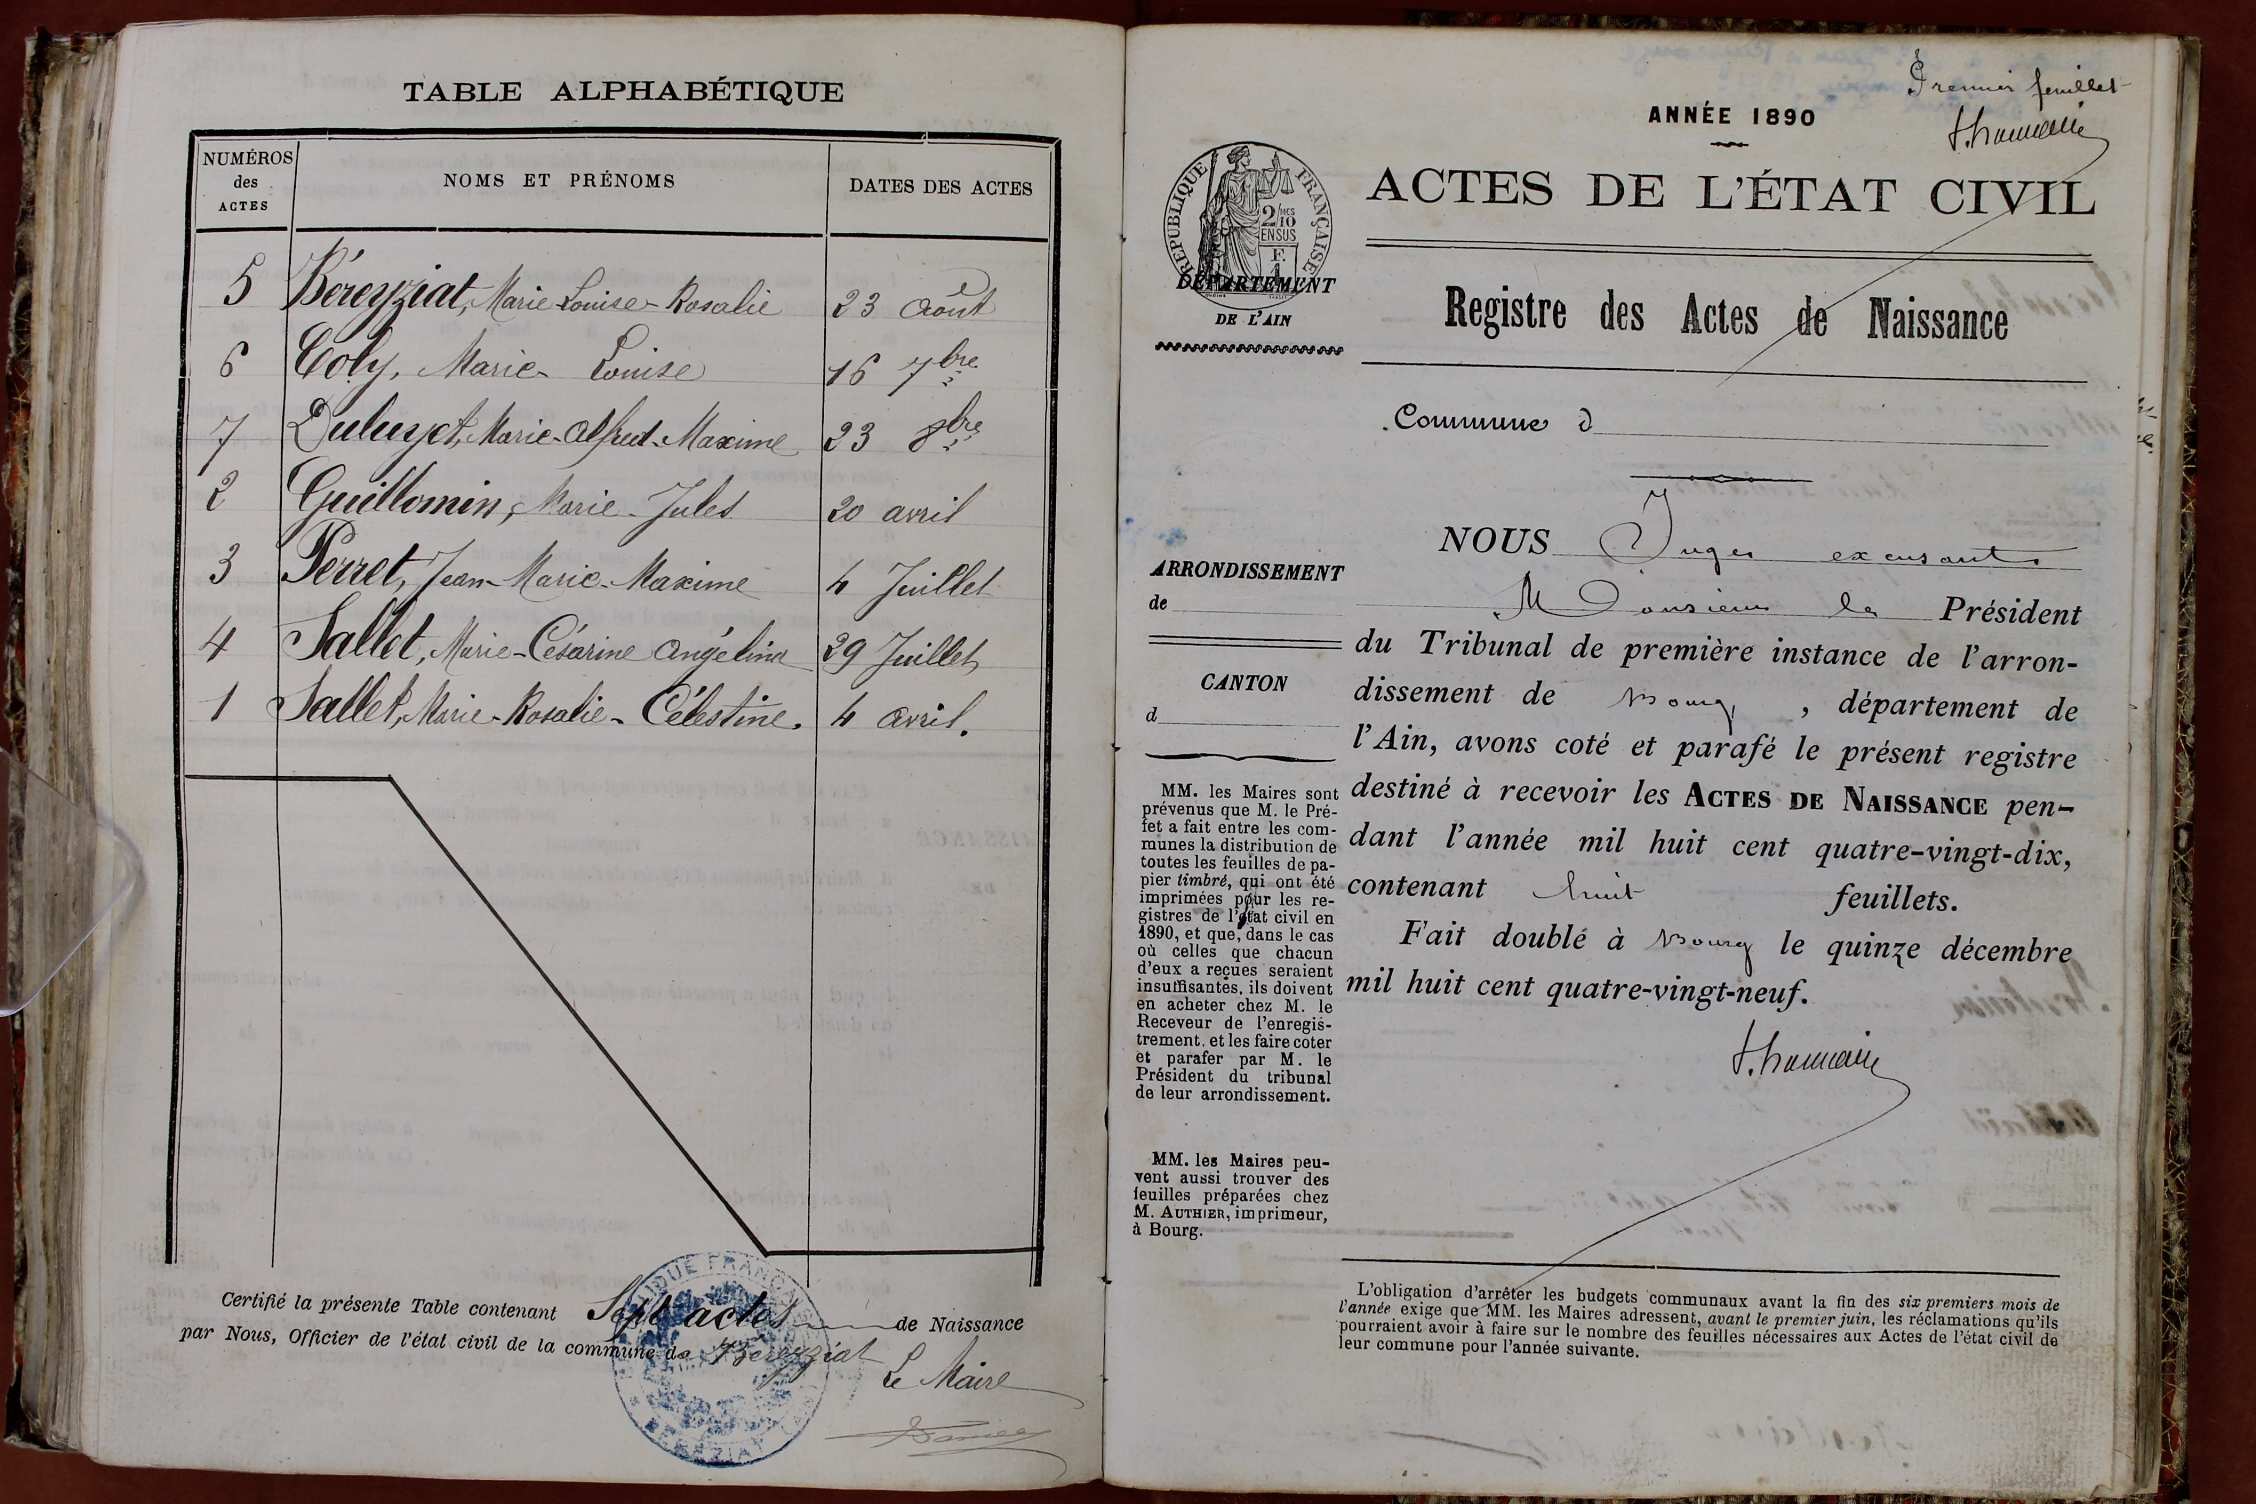 TABLE ALPHABÉTIQUE
NUMÉROS des ACTES
NOMS ET PRÉNOMS
DATES DES ACTES
5 Béreyziat, Marie Louise-Rosalie 23 août
6 Coly, Marie-Louise 16 7bre
7 Marie-Alfred-Maxime 23 8bre
2 Guillomin, Marie-Jules 20 avril
3 Perret, Jean-Marie-Maxime 4 Juillet
4 Sallet, Marie-Césarine Angélina 29 Juillet
1 Sallet, Marie-Rosalie-Célestine. 4 avril.
Certifié la présente Table contenant Sept actes de Naissance
par Nous, Officier de l'état civil de la commune de Béreyziat
Le Maire
Premier feuillet
ANNÉE 1890
ACTES DE L'ÉTAT CIVIL
RÉPUBLIQUE FRANÇAISE
2/10 MES
EN SUS
F.
1
DÉPARTEMENT
DE L'AIN
Registre des Actes de Naissance
Commune d
NOUS Juges excusant
Monsieur le Président
du Tribunal de première instance de l'arron-
dissement de Bourg, département de
l'Ain, avons coté et parafé le présent registre
destiné à recevoir les ACTES DE NAISSANCE pen-
dant l'année mil huit cent quatre-vingt-dix,
contenant huit feuillets.
Fait doublé à Bourg le quinze décembre
mil huit cent quatre-vingt-neuf.
ARRONDISSEMENT
de
CANTON
d
MM. les Maires sont
prévenus que M. le Pré-
fet a fait entre les com-
munes la distribution de
toutes les feuilles de pa-
pier timbré, qui ont été
imprimées pour les re-
gistres de l'état civil en
1890, et que, dans le cas
où celles que chacun
d'eux a reçues seraient
insuffisantes, ils doivent
en acheter chez M. le
Receveur de l'enregis-
trement, et les faire coter
et parafer par M. le
Président du tribunal
de leur arrondissement.
MM. les Maires peu-
vent aussi trouver des
feuilles préparées chez
M. AUTHIER, imprimeur,
à Bourg.
L'obligation d'arrêter les budgets communaux avant la fin des six premiers mois de
l'année exige que MM. les Maires adressent, avant le premier juin, les réclamations qu'ils
pourraient avoir à faire sur le nombre des feuilles nécessaires aux Actes de l'état civil de
leur commune pour l'année suivante.